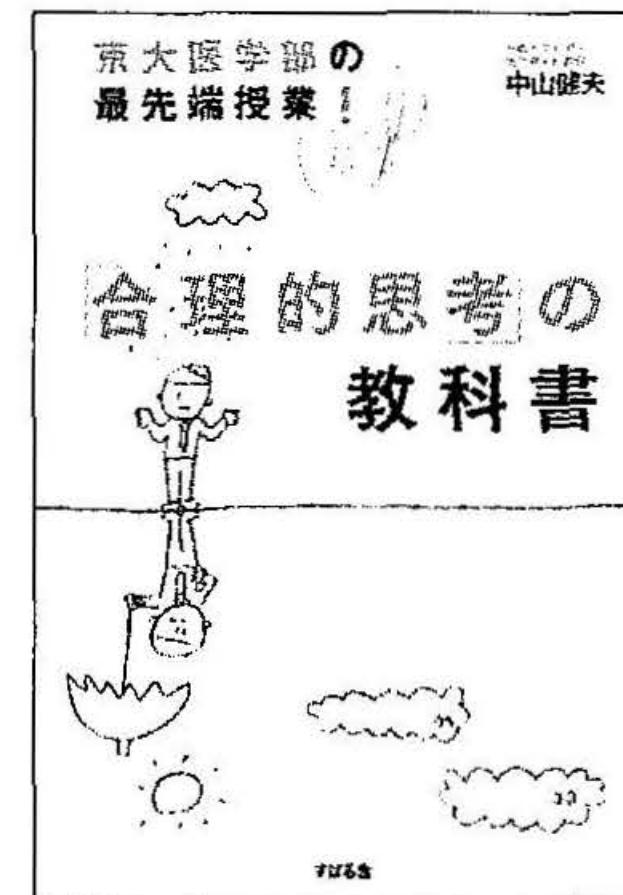 京大医学部の
最先端授業！
中山健夫
合理的思考の
教科書
すばる舎